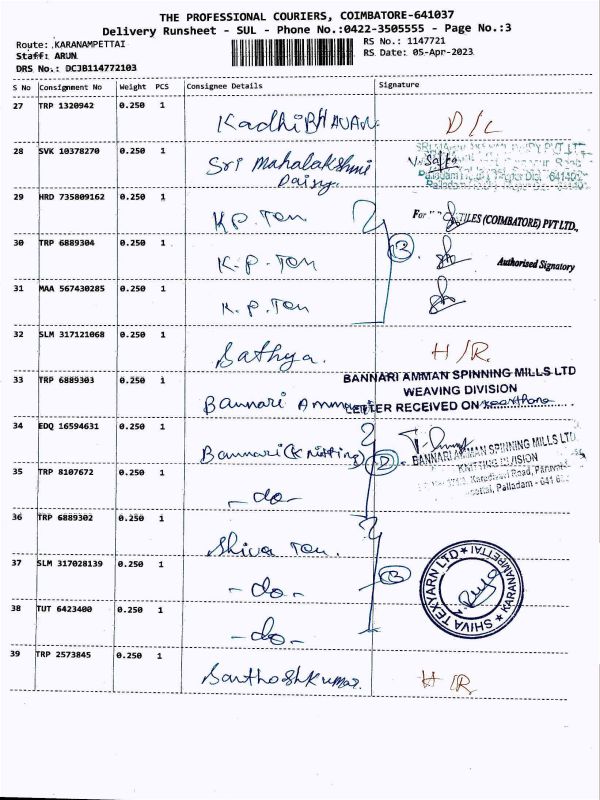 THE PROFESSIONAL COURIERS, COIMBATORE-641037
Delivery Runsheet - SUL - Phone No.:0422-3505555 - Page No.:3
Route: KARANAMPETTAI
RS No.: 1147721
Staff: ARUN
RS Date: 05-Apr-2023
DRS No.: DCJB114772103
S No Consignment No Weight PCS Consignee Details Signature
27 TRP 1320942 0.250 1 Kadhi BHAVAN D/L
28 SVK 10378270 0.250 1 Sri Mahalakshmi
Dairy.
29 HRD 735809162 0.250 1 K.P. Tex For TILES (COIMBATORE) PVT LTD.,
30 TRP 6889304 0.250 1 K.P. Tex 3 Authorised Signatory
31 MAA 567430285 0.250 1 K.P. Tex
32 SLM 317121068 0.250 1 Sathya. H/R.
BANNARI AMMAN SPINNING MILLS LTD
WEAVING DIVISION
33 TRP 6889303 0.250 1 Bannari Amman LETTER RECEIVED ON
34 EDQ 16594631 0.250 1 Bannari (Knitting) 2
BANNARI AMMAN SPINNING MILLS LTD.
KNITTING DIVISION
Karadivavi Road,
Palladam - 641
35 TRP 8107672 0.250 1 -do-
36 TRP 6889302 0.250 1 Shiva Tex.
37 SLM 317028139 0.250 1 -do- 3
38 TUT 6423400 0.250 1 -do-
SHIVA TEXYARN LTD ★ KARANAMPETTAI ★
39 TRP 2573845 0.250 1 Santhosh Kumar. H/R